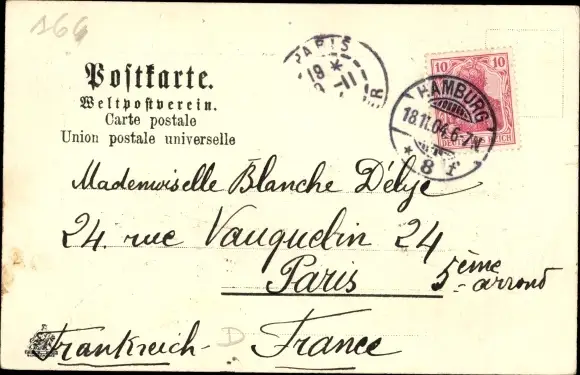 166
Postkarte.
Weltpostverein.
Carte postale
Union postale universelle
PARIS
19 *
11
10 10
DEUTSCHES REICH
HAMBURG
18.11.04.6-7N
* 8 f
Mademoiselle Blanche Délye
24. rue Vauquelin 24
Paris 5ème arrond
Frankreich - France
D